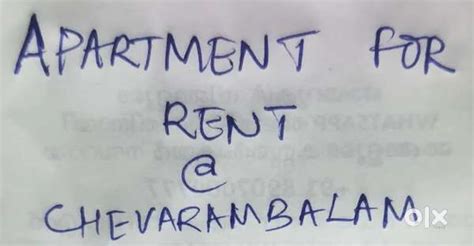 APARTMENT FOR
RENT
@
CHEVARAMBALAM
olx